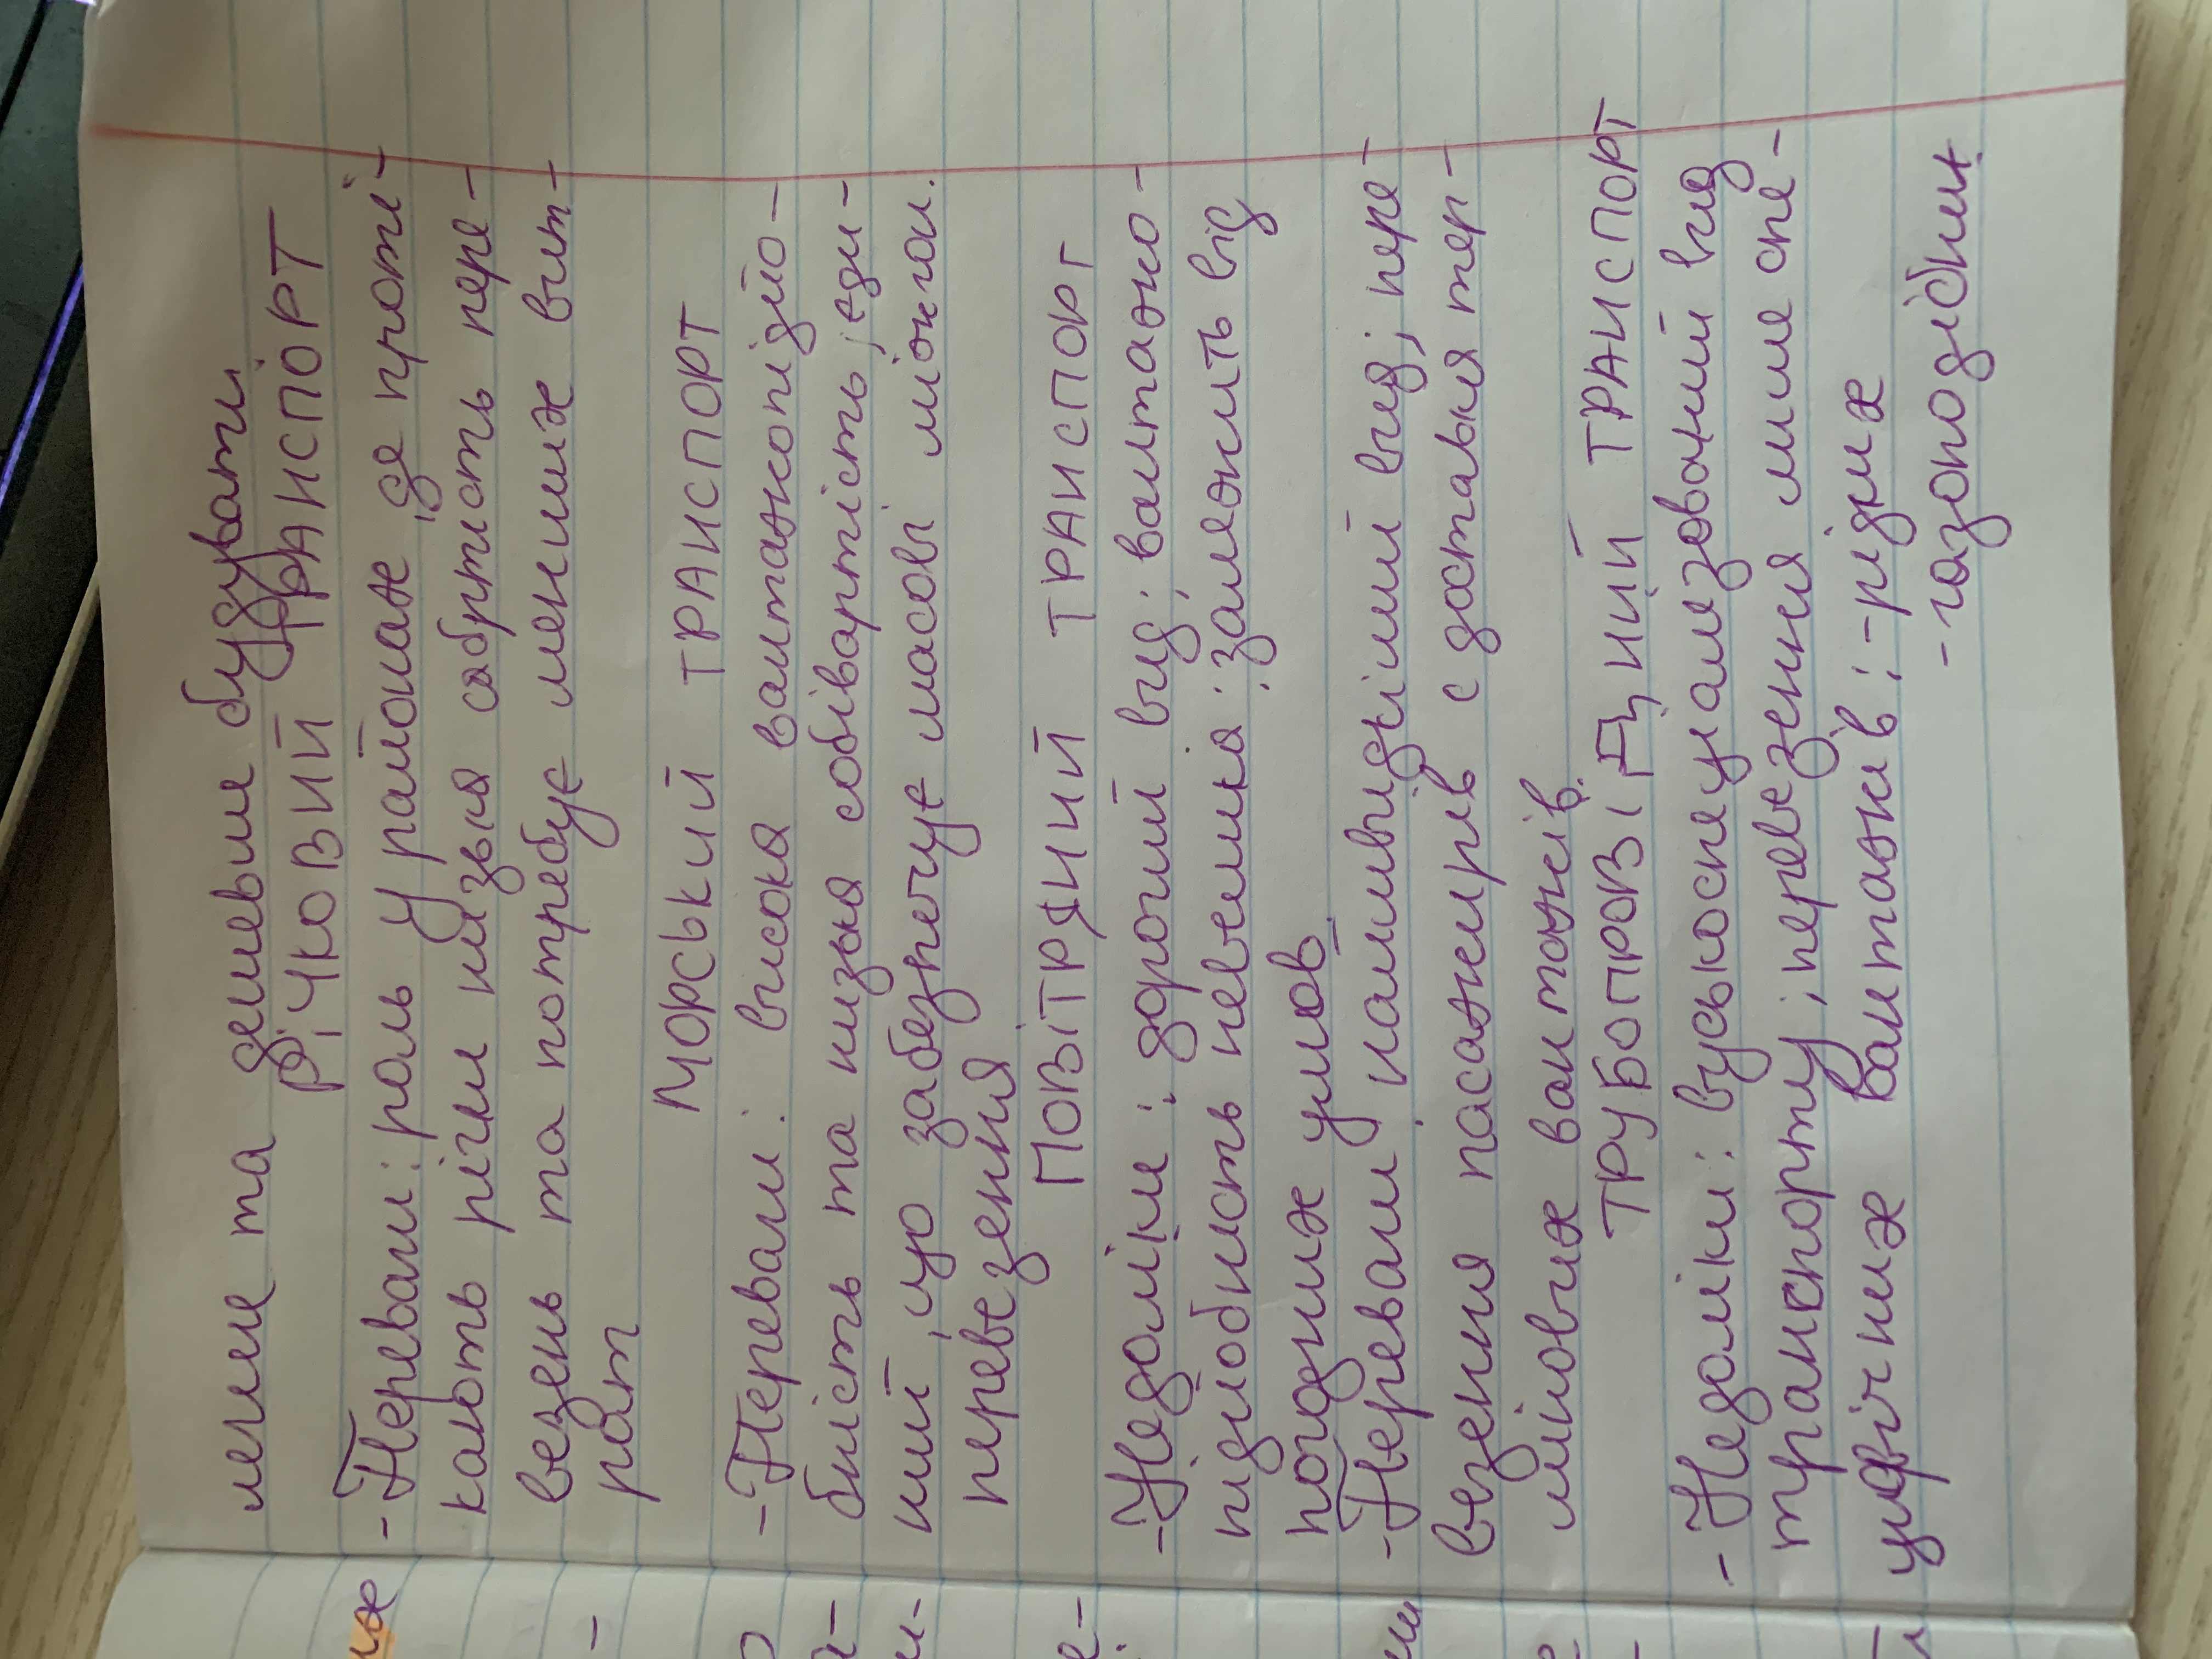 легше та дешевше будувати
РІЧКОВИЙ ТРАНСПОРТ
-Переваги: роль у районах де проті-
кають ріки низька собртисть пере-
везень та потребує менших вит-
рат
МОРСЬКИЙ ТРАНСПОРТ
-Переваги: висока вантажопідйо-
бність та низька собівартість, єди-
ний, що забезпечує масові міжнон.
перевезення
ПОВІТРЯНИЙ ТРАНСПОРТ
-Недоліки: дорогий вид; вантажо-
підйобність невелика; залежить від
погодних умов
-Переваги: найшвидший вид; пере-
везення пасажирів с доставкя тер-
мінових вантажів.
ТРУБОПРОВІДНИЙ ТРАНСПОРТ
-Недоліки: вузькоспеціалізований вид
транспорту; перевезення лише спе-
цифічних вантажів: -рідких
-газоподібних